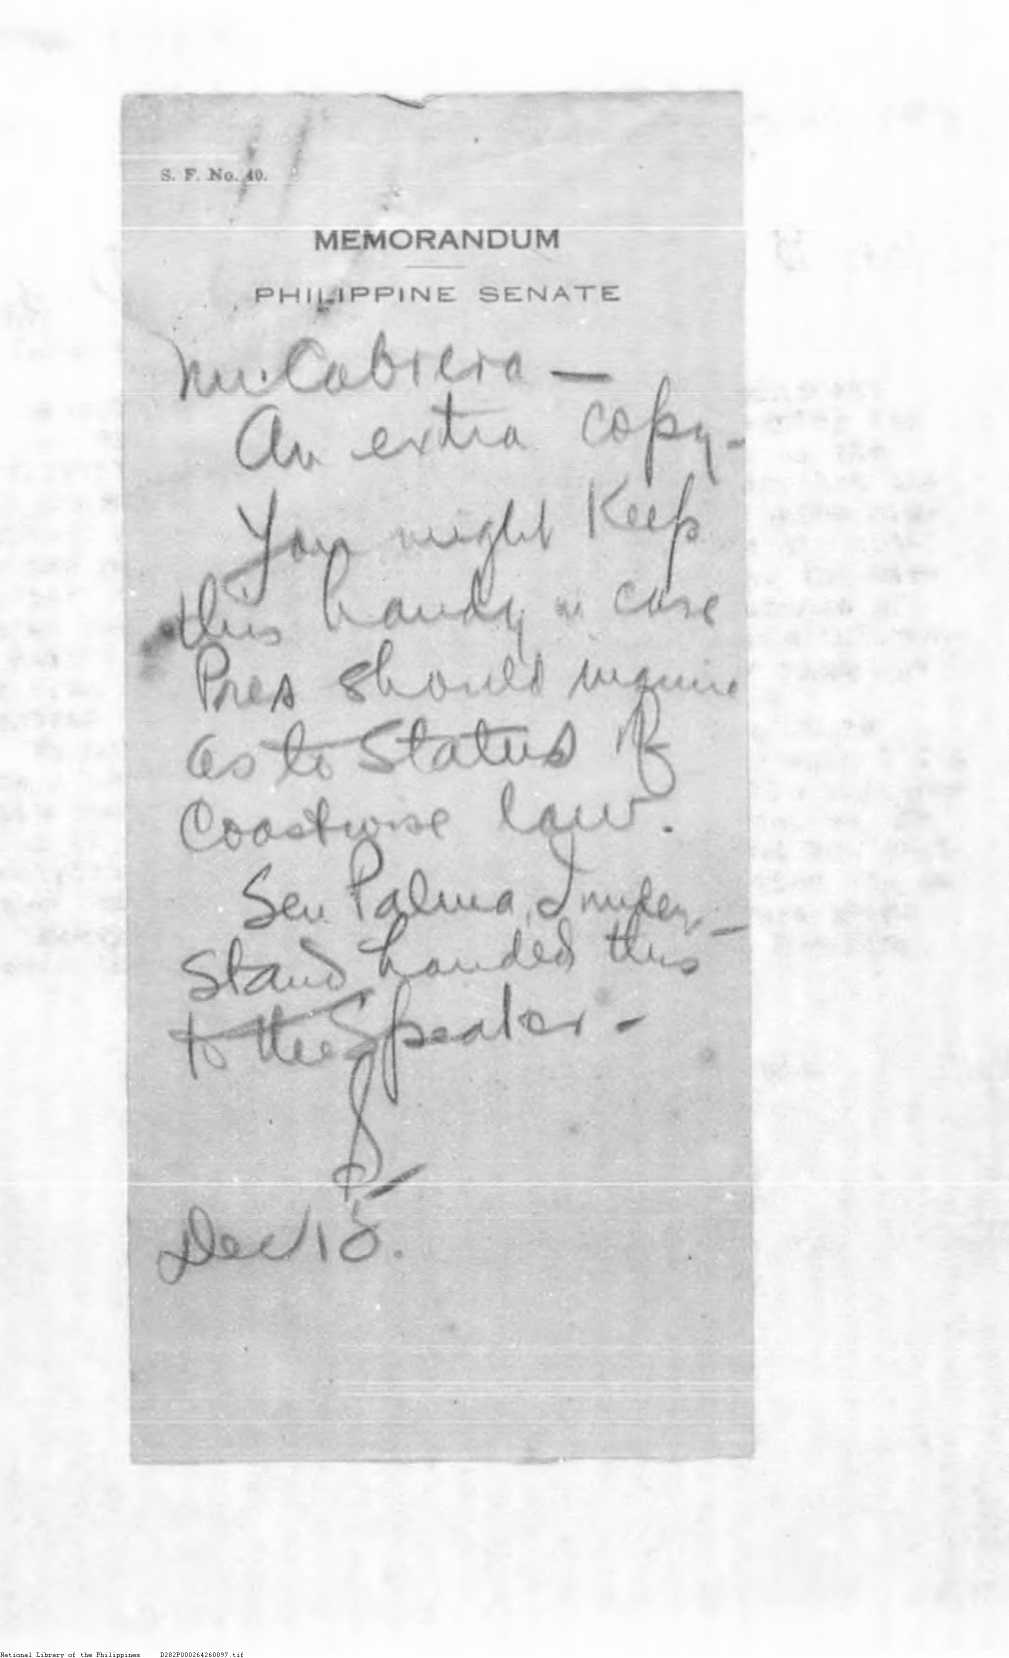 S. F. No. 40.
MEMORANDUM
PHILIPPINE SENATE
Mr. Cabrera —
An extra copy -
You might Keep
this handy in case
Pres should inquire
as to Status of
Coastwise law.
Sen Palma, I under -
stand handed this
to the Speaker -
S
Dec 15.
National Library of the Philippines D282P000264260097.tif